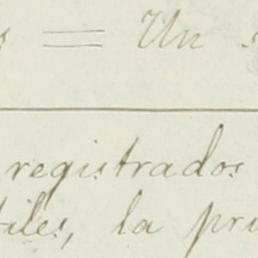 s = Un s
registrados
tiles, la pri